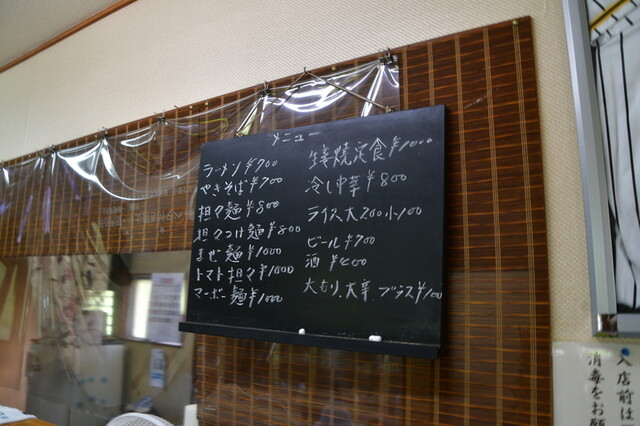 メニュー
ラーメン ¥700
やきそば ¥700
担々麺 ¥800
担々つけ麺 ¥800
まぜ麺 ¥1000
トマト担々 ¥1000
マーボー麺 ¥1000
生姜焼定食 ¥1000
冷し中華 ¥800
ライス大200小100
ビール ¥700
酒 ¥400
大もり、大辛 プラス ¥100
入店前は
消毒をお願